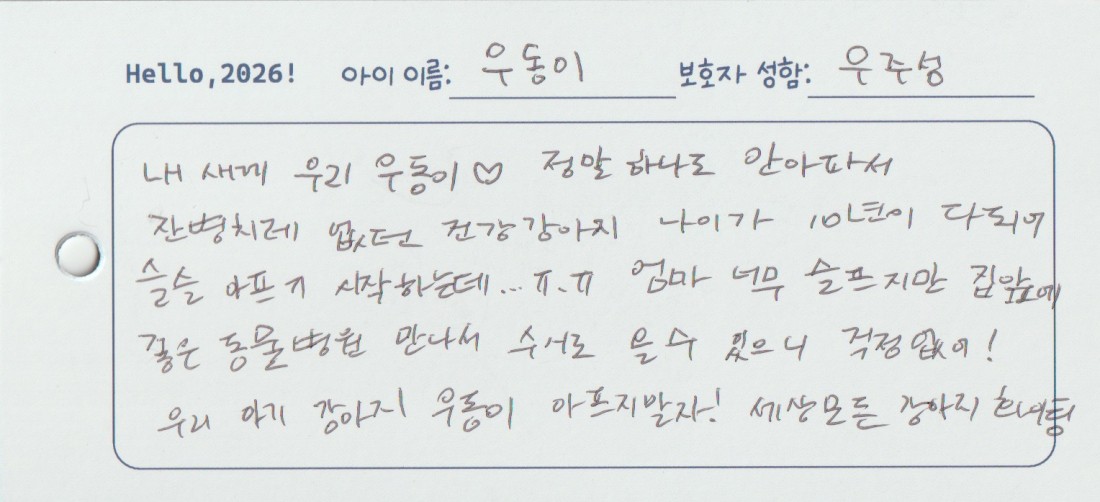 Hello,2026! 아이 이름: 우동이 보호자 성함: 우주성
내 새끼 우리 우동이♡ 정말 하나도 안아파서
잔병치레 없던 건강강아지 나이가 10년이 다되어
슬슬 아프기 시작하는데...ㅠ.ㅠ 엄마 너무 슬프지만 집앞에
좋은 동물병원 만나서 수시로 올수 있으니 걱정없어!
우리 아기 강아지 우동이 아프지말자! 세상모든 강아지